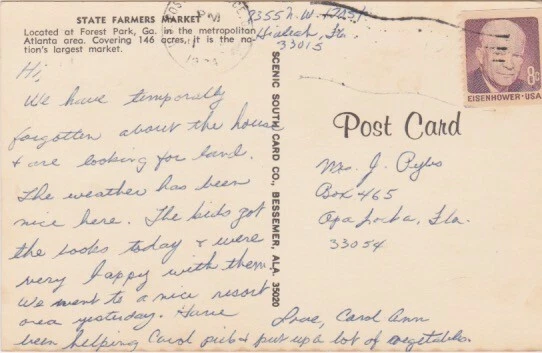 STATE FARMERS MARKET
Located at Forest Park, Ga. in the metropolitan
Atlanta area. Covering 146 acres, it is the na-
tion's largest market.
Hi,
We have temporally
forgotten about the house
+ are looking for land.
The weather has been
nice here. The kids got
the books today + were
very happy with them.
We went to a nice resort
area yesterday. Have
been helping Carol pick + put up a lot of vegetables.
Love, Carol Ann
SCENIC SOUTH CARD CO., BESSEMER, ALA. 35020
8355 N.W.
Hialeah, Fla.
33015
EISENHOWER·USA
8c
Post Card
Mrs. J. Pyles
Box 465
Opa Locka, Fla.
33054